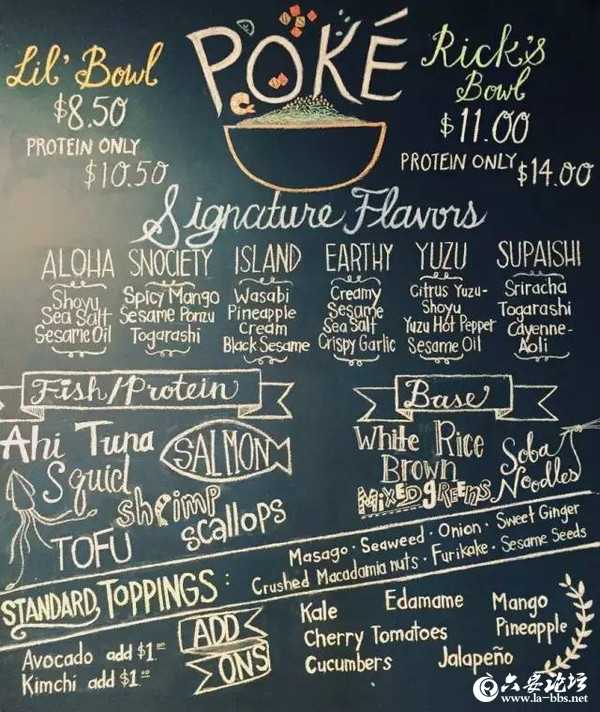 POKÉ
Lil' Bowl
$8.50
PROTEIN ONLY
$10.50
Rick's
Bowl
$11.00
PROTEIN ONLY
$14.00
Signature Flavors
ALOHA
Shoyu
Sea Salt
Sesame Oil
SNOCIETY
Spicy Mango
Sesame Ponzu
Togarashi
ISLAND
Wasabi
Pineapple
Cream
Black Sesame
EARTHY
Creamy
Sesame
Sea Salt
Crispy Garlic
YUZU
Citrus Yuzu-
Shoyu
Yuzu Hot Pepper
Sesame Oil
SUPAISHI
Sriracha
Togarashi
Cayenne-
Aoli
Fish/Protein
Ahi Tuna
SALMON
Squid
shrimp
scallops
TOFU
Base
White Rice
Brown
MIXED greens
Soba
Noodles
STANDARD TOPPINGS:
Masago · Seaweed · Onion · Sweet Ginger
Crushed Macadamia nuts · Furikake · Sesame Seeds
ADD
ONS
Avocado add $1.00
Kimchi add $1.00
Kale Edamame Mango
Cherry Tomatoes Pineapple
Cucumbers Jalapeño
六安论坛
www.la-bbs.net